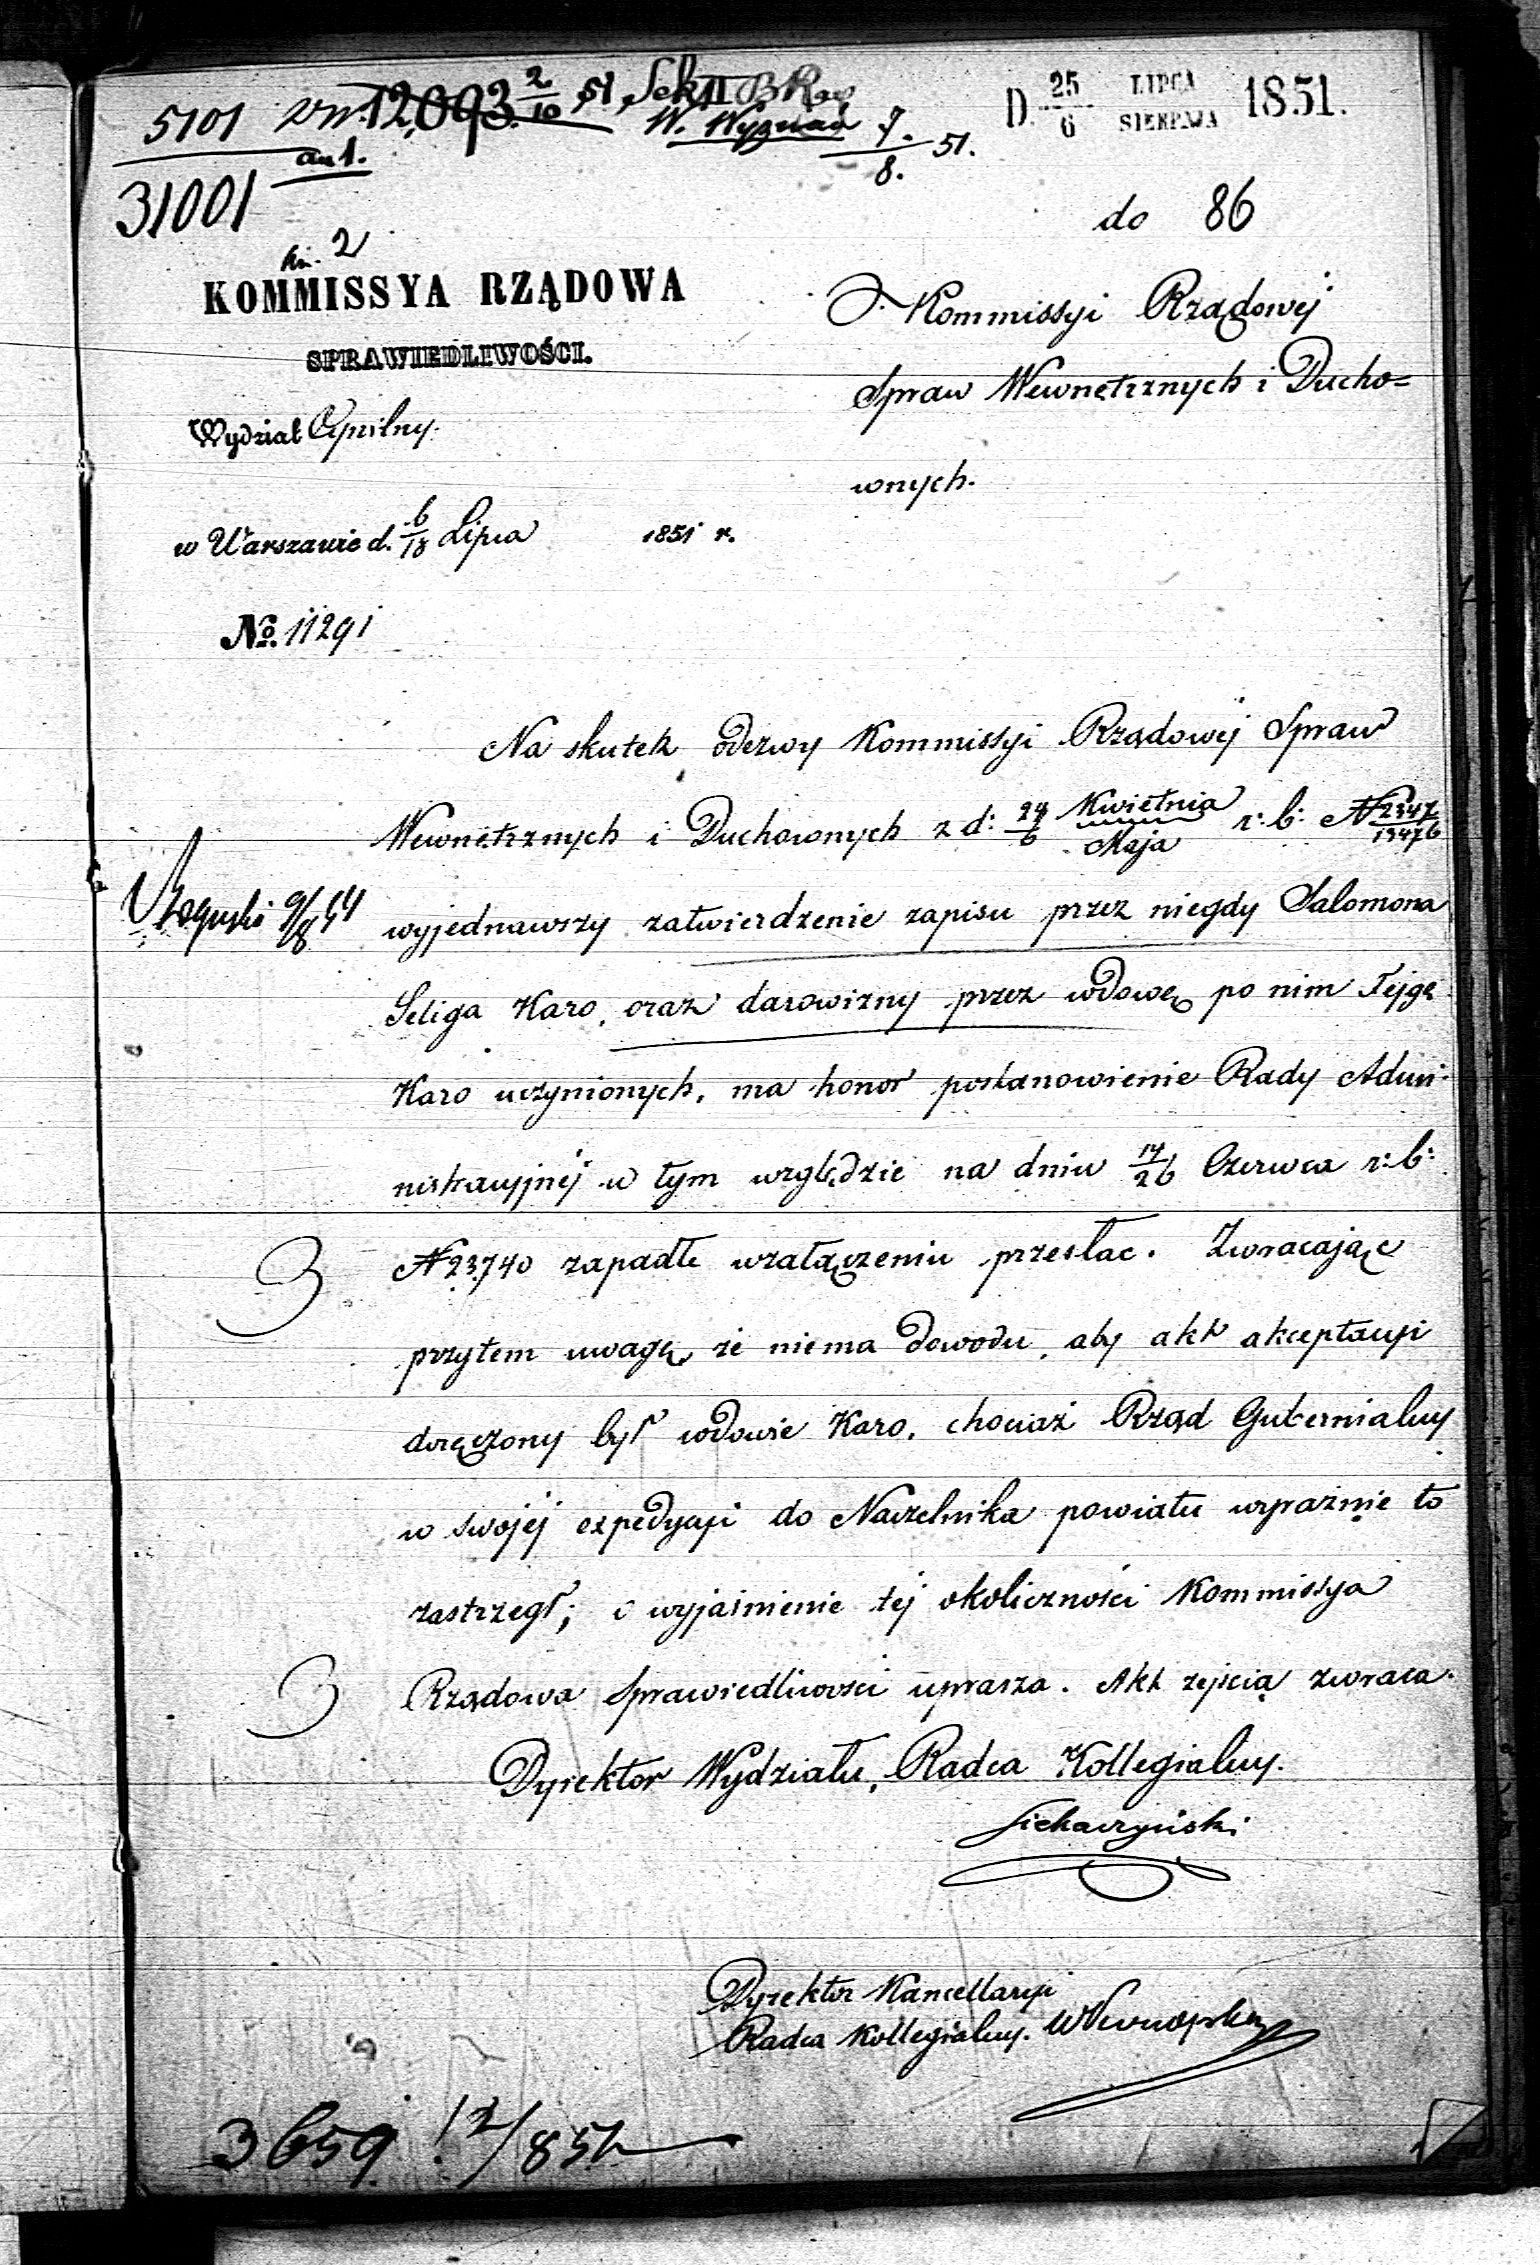 5101 12,093 2/10 51 Sek II
W. Wyznań 7./8. 51.
ant.
31001
D. 25/6 LIPCA/SIERPNIA 1851.
do 86
2
KOMMISSYA RZĄDOWA
SPRAWIEDLIWOŚCI.
Wydział Cywilny.
w Warszawie d. 6/18 Lipca 1851 r.
No. 11291
Kommissyi Rządowéj
Spraw Wewnętrznych i Ducho=
wnych.
Na skutek odezwy Kommissyi Rządowéj Spraw
Wewnętrznych i Duchownych z d: 24/6 Kwietnia/Maja r: b: N 2347/13476
wyjednawszy zatwierdzenie zapisu przez niegdy Salomona
Seliga Karo, oraz darowizny przez wdowę po nim Fejgę
Karo uczynionych, ma honor postanowienie Rady Admi-
nistracyjnéj w tym względzie na dniu 14/26 Czerwca r: b:
N 23,740 zapadłe w załączeniu przesłac. Zwracając
przytem uwagę, że niema dowodu, aby akt akceptacyi
doręczony był wdowie Karo, chociaż Rząd Gubernialny
w swojéj expedycyi do Naczelnika powiatu wyraźnie to
zastrzegł; o wyjaśnienie téj okoliczności Kommissya
Rządowa Sprawiedliwości uprasza. Akt zejścia zwraca.
Dyrektor Wydziału, Radca Kollegialny.
Dyrektor Kancellaryi
Radca Kollegialny.
3659. 12/8 51